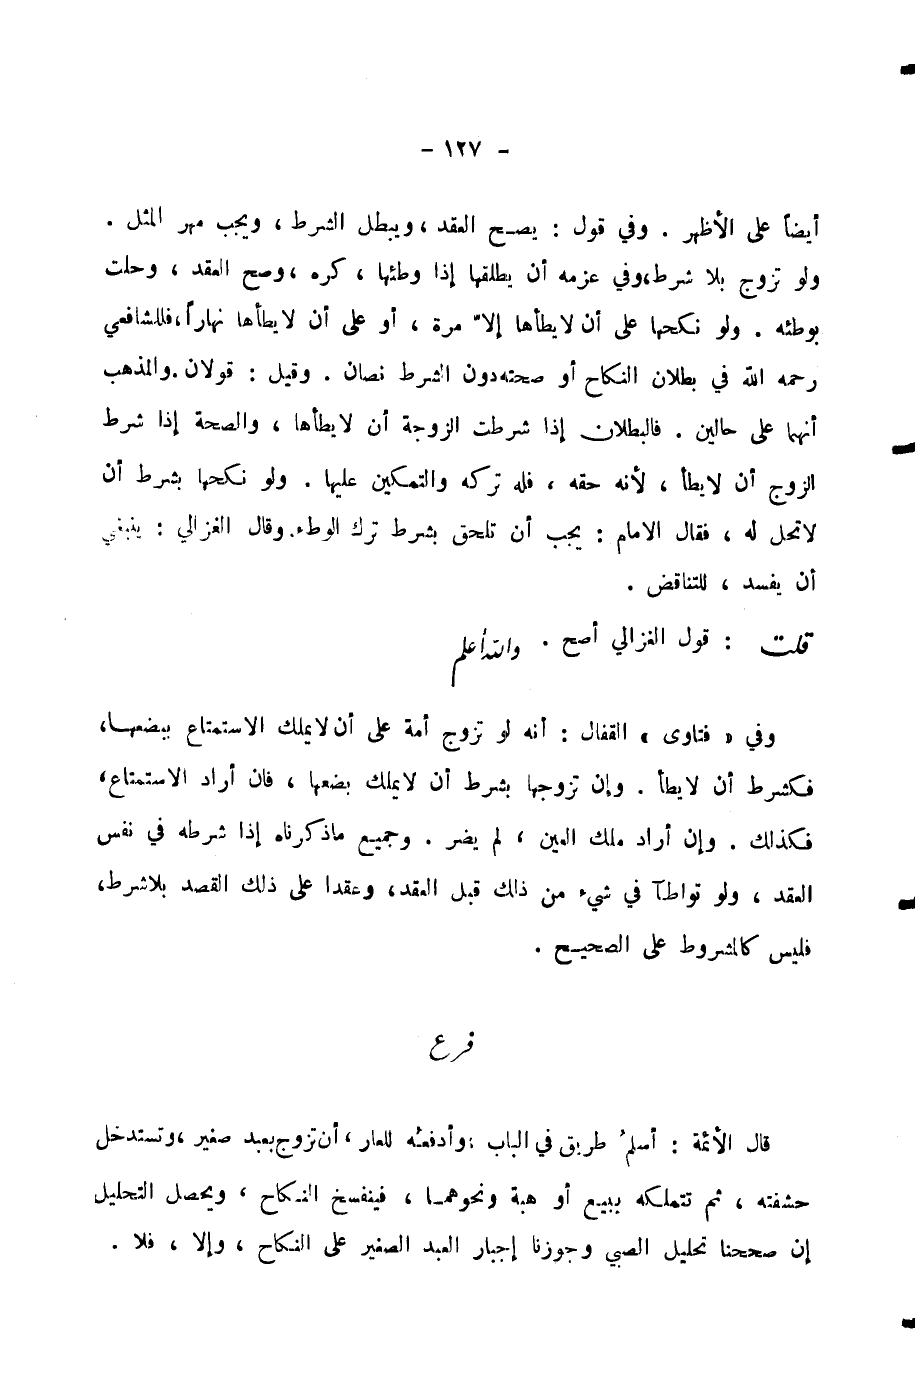 - ١٢٧ -
أيضاً على الأظهر . وفي قول : يصح العقد ، ويبطل الشرط ، ويجب مهر المثل .
ولو تزوج بلا شرط ، وفي عزمه أن يطلقها إذا وطئها ، كره ، وصح العقد ، وحلت
بوطئه . ولو نكحها على أن لا يطأها إلا مرة ، أو على أن لا يطأها نهاراً ، فللشافعي
رحمه الله في بطلان النكاح أو صحته دون الشرط نصان . وقيل : قولان . والمذهب
أنها على حالين . فالبطلان إذا شرطت الزوجة أن لا يطأها ، والصحة إذا شرط
الزوج أن لا يطأ ، لأنه حقه ، فله تركه والتمكين عليها . ولو نكحها بشرط أن
لا تحل له ، فقال الامام : يجب أن تلحق بشرط ترك الوطء . وقال الغزالي : ينبغي
أن يفسد ، للتناقض .
قلت : قول الغزالي أصح . والله أعلم
وفي « فتاوى » القفال : أنه لو تزوج أمة على أن لا يملك الاستمتاع ببضعها ،
فكشرط أن لا يطأ . وإن تزوجها بشرط أن لا يملك بضعها ، فان أراد الاستمتاع ،
فكذلك . وإن أراد ملك العين ، لم يضر . وجميع ما ذكرناه إذا شرطه في نفس
العقد ، ولو تواطآ في شيء من ذلك قبل العقد ، وعقدا على ذلك القصد بلا شرط ،
فليس كالمشروط على الصحيح .
فرع
قال الأئمة : أسلمُ طريق في الباب ، وأدفعُه للعار ، أن تزوج بعبد صغير ، وتستدخل
حشفته ، ثم تتملكه ببيع أو هبة ونحوهما ، فينفسخ النكاح ، ويحصل التحليل
إن صححنا تحليل الصبي وجوزنا إجبار العبد الصغير على النكاح ، وإلا ، فلا .